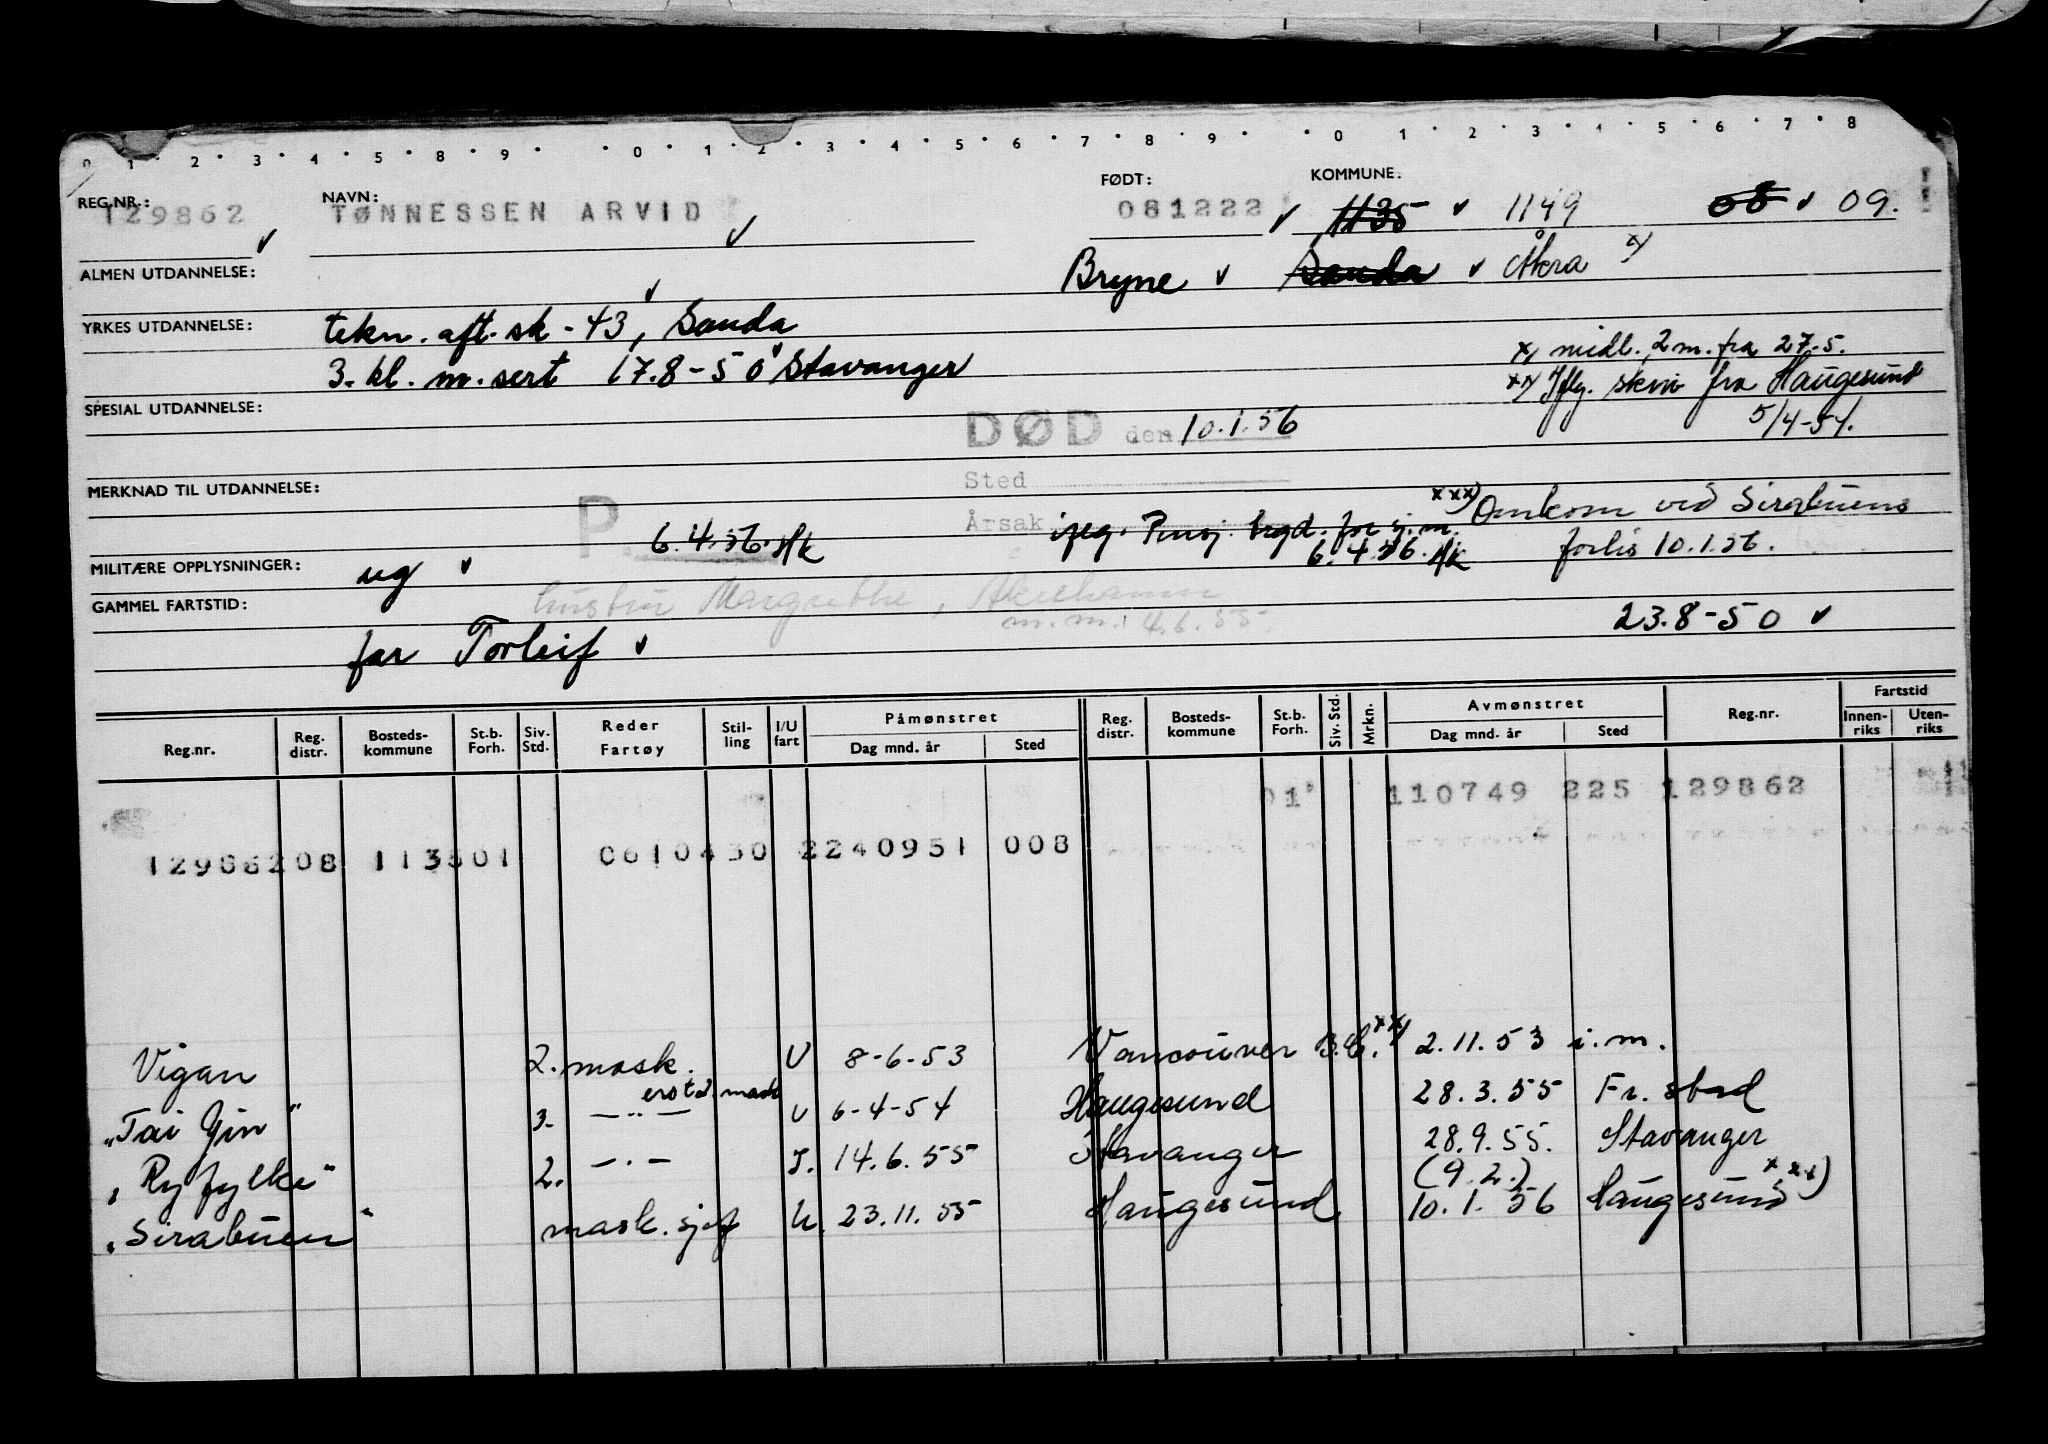 0 1 2 3 4 5 6 8 9 0 1 2 3 4 5 6 7 8 9 0 1 2 3 4 5 6 7 8
REG.NR.: 129862 NAVN: TØNNESSEN ARVID FØDT: 081222 KOMMUNE: 1135 1149 08 09.
ALMEN UTDANNELSE: Bryne Sauda Åkra x)
YRKES UTDANNELSE: tekn. aft. sk - 43, Sauda
x) midl. 2 m. fra 27.5.
3. kl. m. sert 17.8-50 Stavanger
xx) Iflg. skriv fra Haugesund
5/4-54.
SPESIAL UTDANNELSE:
DØD den 10.1.56
Sted
MERKNAD TIL UTDANNELSE:
Årsak
xxx) Omkom ved Sirabuens
forlis 10.1.56.
P. 6.4.56.
trygd. for sj.m.
6.4.56.
MILITÆRE OPPLYSNINGER: ug
GAMMEL FARTSTID:
hustru Margrethe, Åkrehamn
m.m. 4.6.55.
23.8-50
far Torleif
Reg.nr. Reg. distr. Bosteds-kommune St.b. Forh. Siv. Std. Reder Fartøy Stil-ling I/U fart Påmønstret Dag mnd. år Sted Reg. distr. Bosteds-kommune St.b. Forh. Siv. Std. Mrkn. Avmønstret Dag mnd. år Sted Reg.nr. Fartstid Innen-riks Uten-riks
01 110749 225 129862
12986208 113501 0610430 2240951 008
Vigan 2. mask. U 8-6-53 Vancouver B.C. xx) 2.11.53 i.m.
"Tai Yin" 3. — " — U 6-4-54 Haugesund 28.3.55 Fr. stad
"Ryfylke" 2. — " — I. 14.6.55 Stavanger 28.9.55. Stavanger
(9.2.)
"Sirabuen" mask. sjef U. 23.11.55 Haugesund 10.1.56 Haugesund xxx)